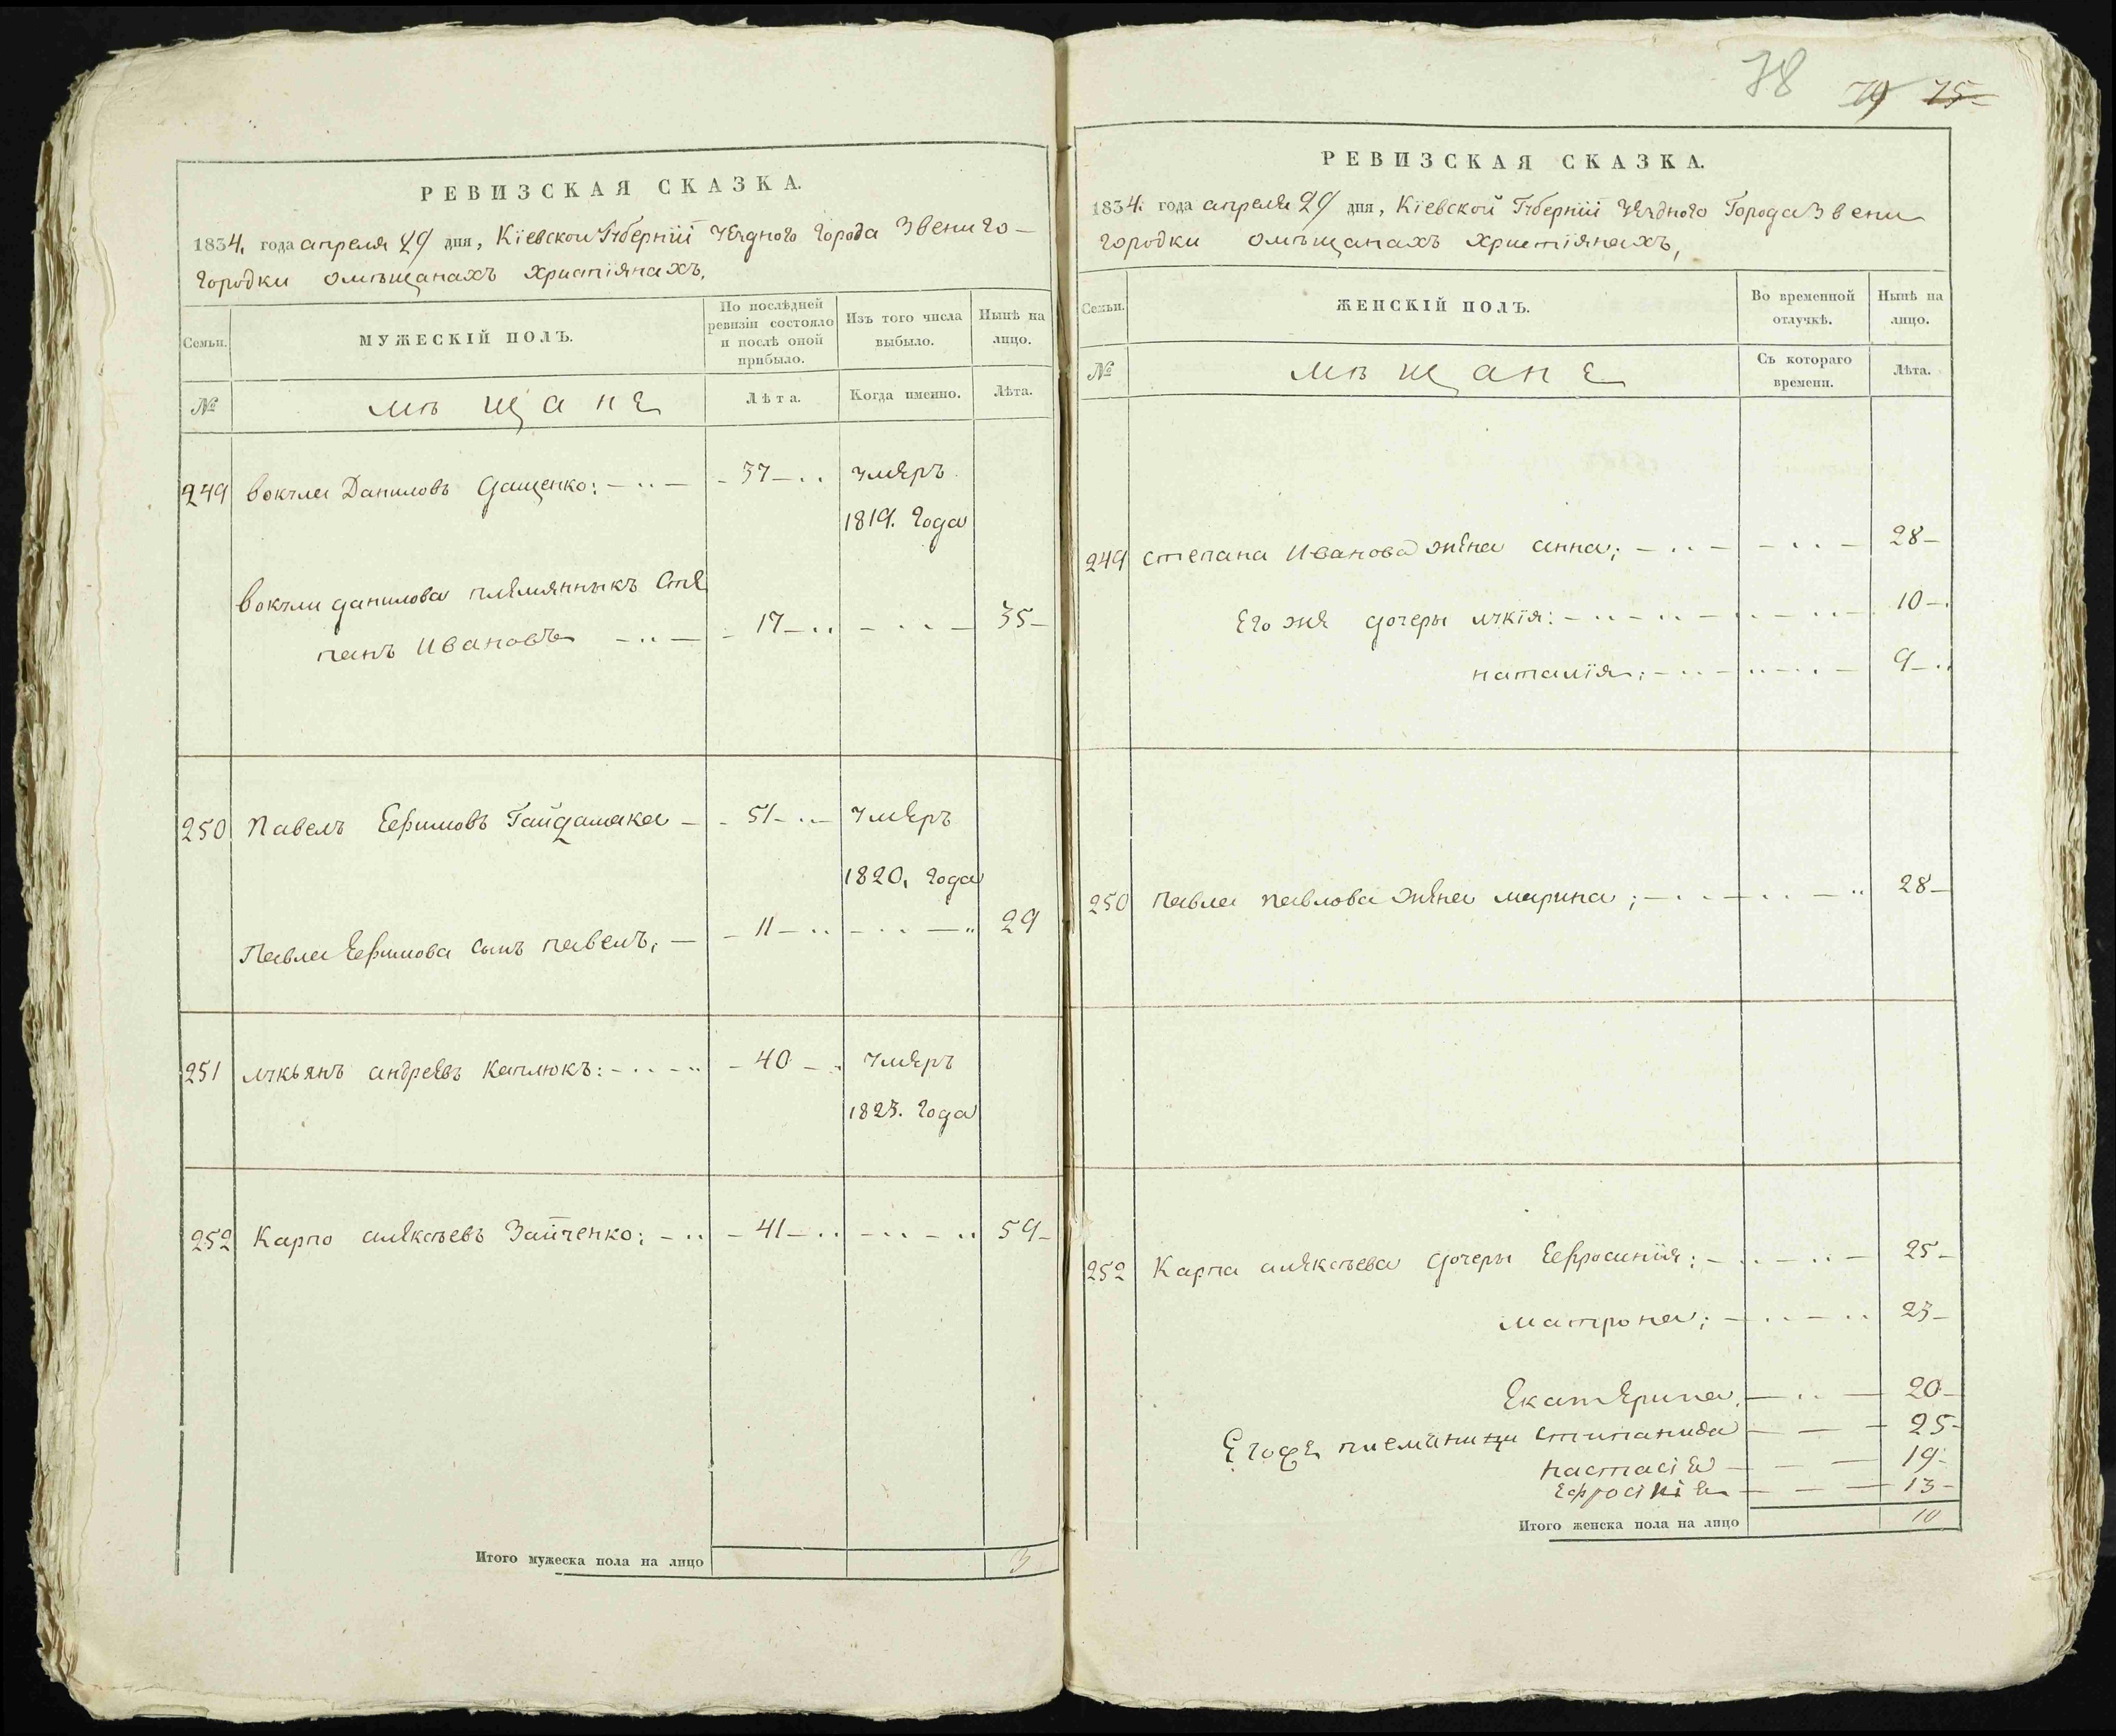 РЕВИЗСКАЯ СКАЗКА.
1834. года апреля 29 дня, Кіевской Губерніи Уезднаго Города Звениго-
городки омѣщанахъ християнахъ,
Семьи.
МУЖЕСКІЙ ПОЛЪ.
По послѣдней ревизіи состояло и послѣ оной прибыло.
Изъ того числа выбыло.
Нынѣ на лицо.
№
мѣщане
Лѣта.
Когда именно.
Лѣта.
249 Вокула Даниловъ Дащенко: 37 умеръ
1819. года
Вокули данилова племянныкъ Сте
панъ Ивановъ 17 35
250 Павелъ Ефимовъ Гайдамака 51 умеръ
1820, года
Павла Ефимова сынъ павелъ, 11 29
251 лукьянъ андреевъ Каплюкъ: 40 умеръ
1823. года
252 Карпо алексѣевъ Зайченко; 41 59
Итого мужеска пола на лицо 3
78 79 75
РЕВИЗСКАЯ СКАЗКА.
1834. года апреля 29 дня, Кіевской Губерніи Уезднаго Города Звени
городки омѣщанахъ християнахъ,
Семьи.
ЖЕНСКІЙ ПОЛЪ.
Во временной отлучкѣ.
Нынѣ на лицо.
№
мѣщане
Съ котораго времени.
Лѣта.
249 степана Иванова жена анна; 28
Его же дочеры лукія: 10
наталія; 9
250 павла павлова жена марина; 28
252 Карпа алексѣева дочеры Ефросинія; 25
матрона; 23
Екатерина, 20
Его же племѣници степанида 25
настасія 19
ефросінія 13
Итого женска пола на лицо 10